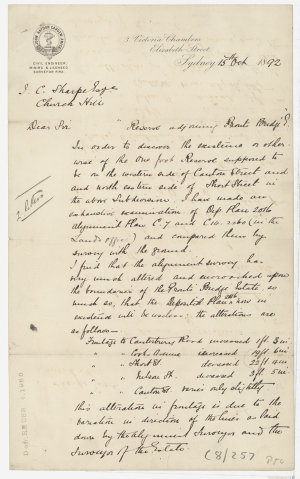 CIVIL ENGINEER,
MINING & LICENSED
SURVEYOR
3 Victoria Chambers
Elizabeth Street
Sydney 15th Oct 1892
J. C. Sharpe Esqre
Church Hill
Dear Sir
"Reserve adjoining Ponts Bridge E."
In order to discover the existence or other-
wise of the One foot Reserve supposed to
be on the western side of Canton Street and
and north eastern side of Short Street in
the above Subdivision. I have made an
exhaustive examination of Dep Plan
alignment Plan C. 7 and C 10. 2060 (in the
Lands Office) and compared them by
survey with the ground.
I find that the alignment survey has
very much altered and encroached upon
the boundaries of the Bridge Estate, so
much so, that the Deposited Plan now in
existence will be useless: the alterations are
as follows—
Frontage to Canterbury Road increased 1ft 3in
" " Cook Avenue increased
" " Short St. decreased
" " Nelson St. decreased 3ft 5in
" " Canton St varies only slightly
This alteration in frontage is due to the
variation in direction of the lines as laid
down by the alignment Surveyor and the
Surveyor of the Estate.
C 8/257